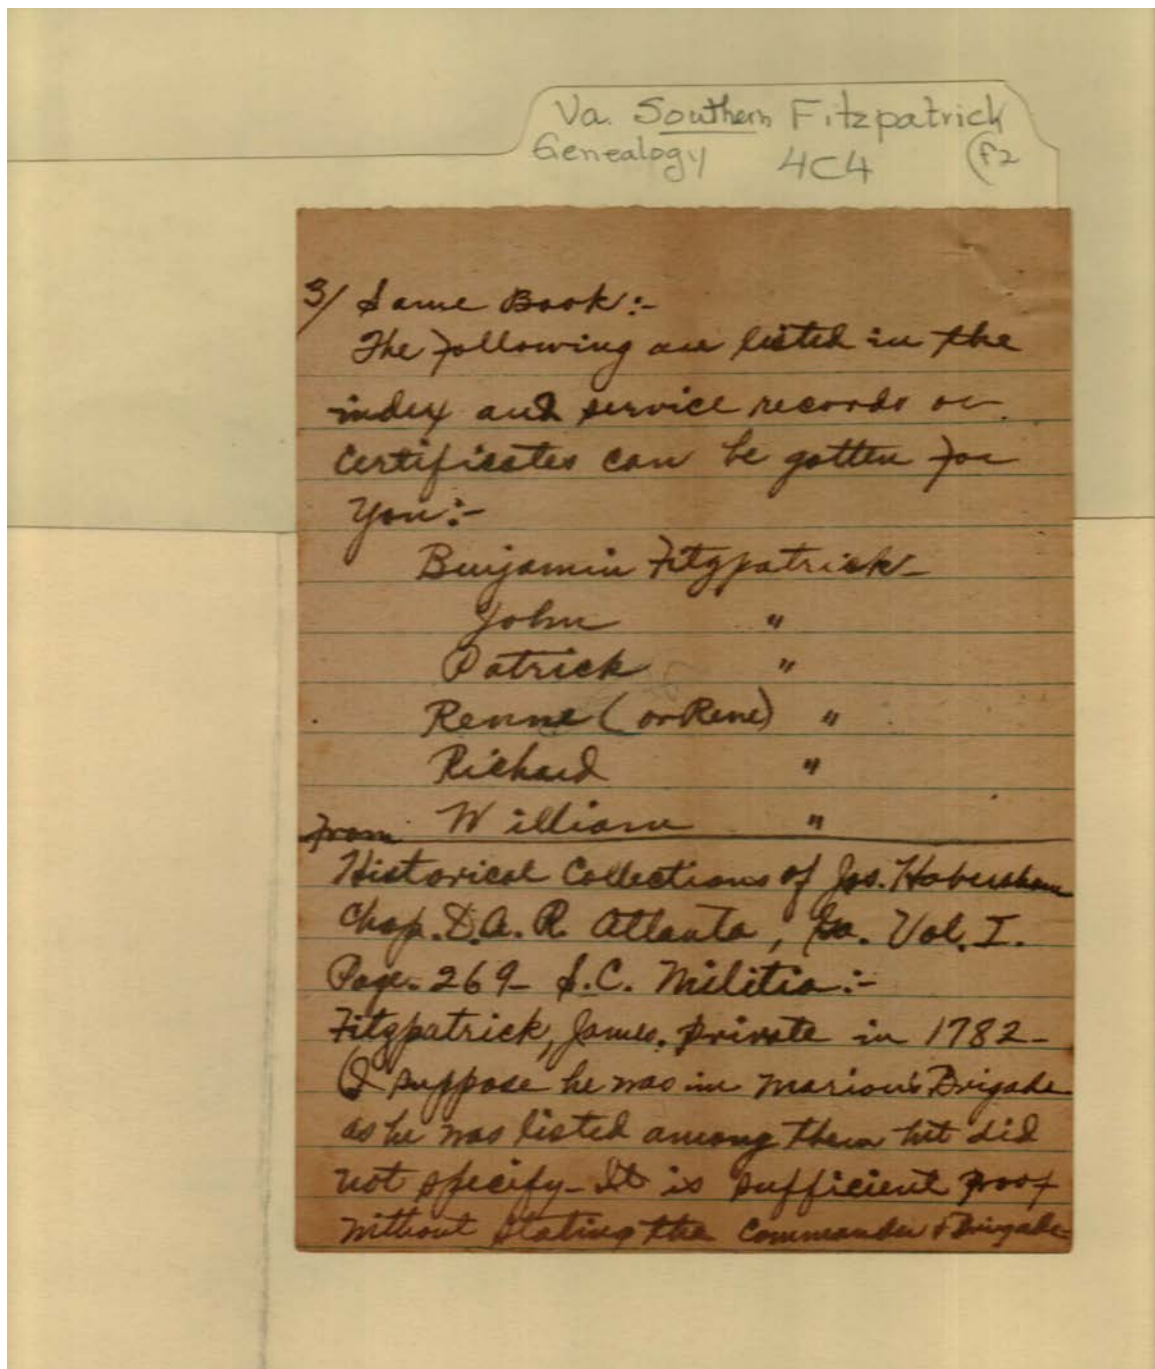 Va. Southern Fitzpatrick
Genealogy 4C4 F2
3/ Same Book:-
The following are listed in the
index and service records or
Certificates can be gotten for
You:-
Benjamin Fitzpatrick-
John "
Patrick "
Renne (or Rene) "
Richard "
William "
From
Historical Collections of Jos. Habersham
Chap. D.A.R. Atlanta, Ga. Vol. I.
Page- 269- S.C. Militia:-
Fitzpatrick, James, Private in 1782-
(I suppose he was in Marion's Brigade
as he was listed among them but did
not specify- It is sufficient proof
without stating the Commander & Brigade-